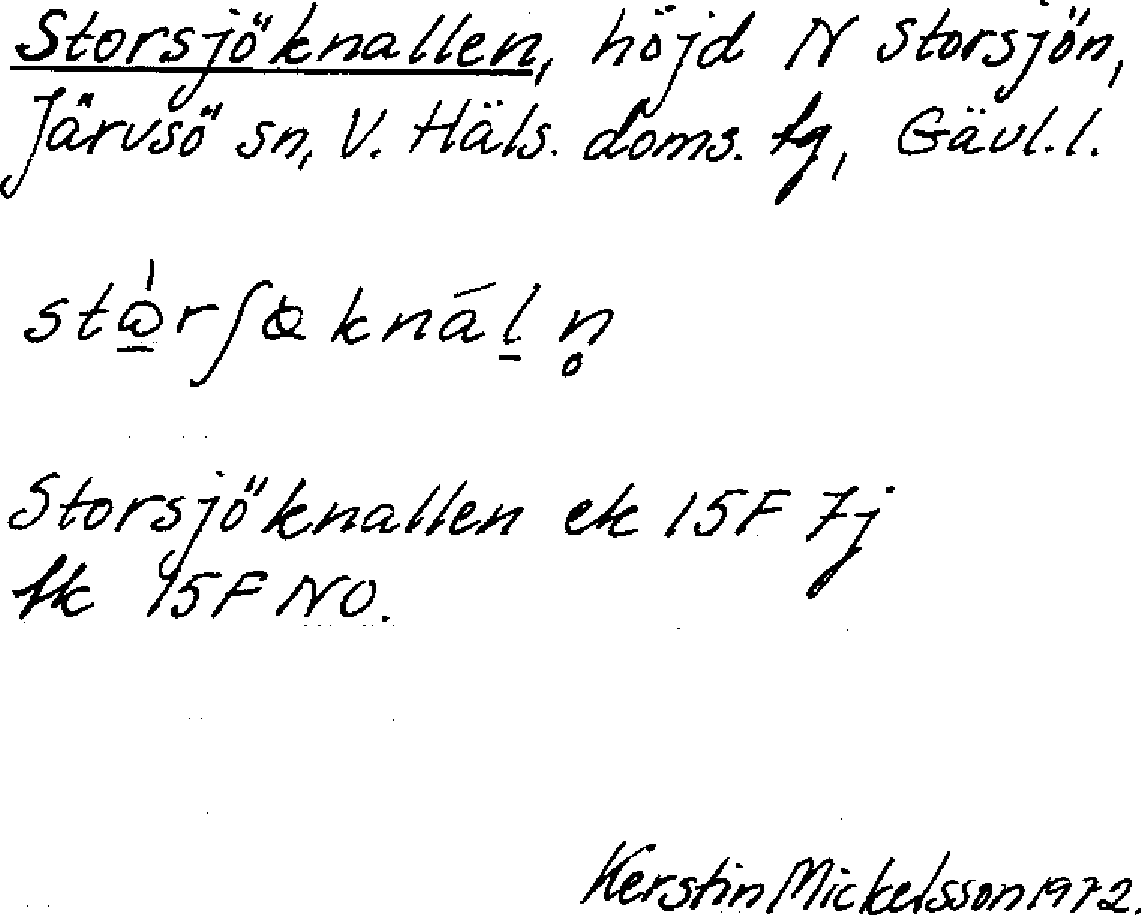 Storsjöknallen, höjd N Storsjön,
Järvsö sn, V. Häls. doms. tg, Gävl.l.
Storsjöknallen ek 15F 7j
tk 15F NO.
Kerstin Mickelsson 1972.